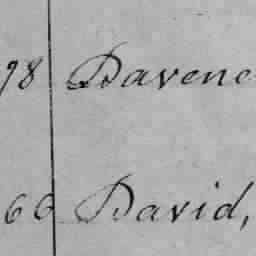 98 Davene
66 David,